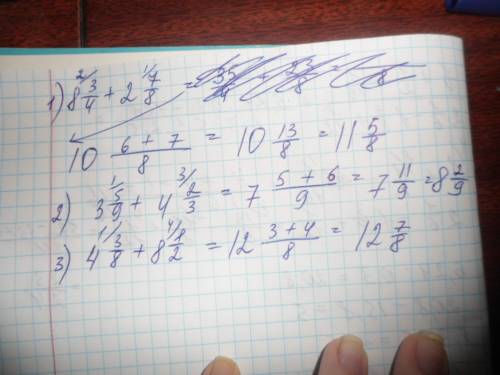 1) 8 ²⁄ 3/4 + 2 ¹⁄ 7/8 =
10 (6 + 7)/8 = 10 13/8 = 11 5/8
2) 3 ¹⁄ 5/9 + 4 ³⁄ 2/3 = 7 (5 + 6)/9 = 7 11/9 = 8 2/9
3) 4 ¹⁄ 3/8 + 8 ⁴⁄ 1/2 = 12 (3 + 4)/8 = 12 7/8